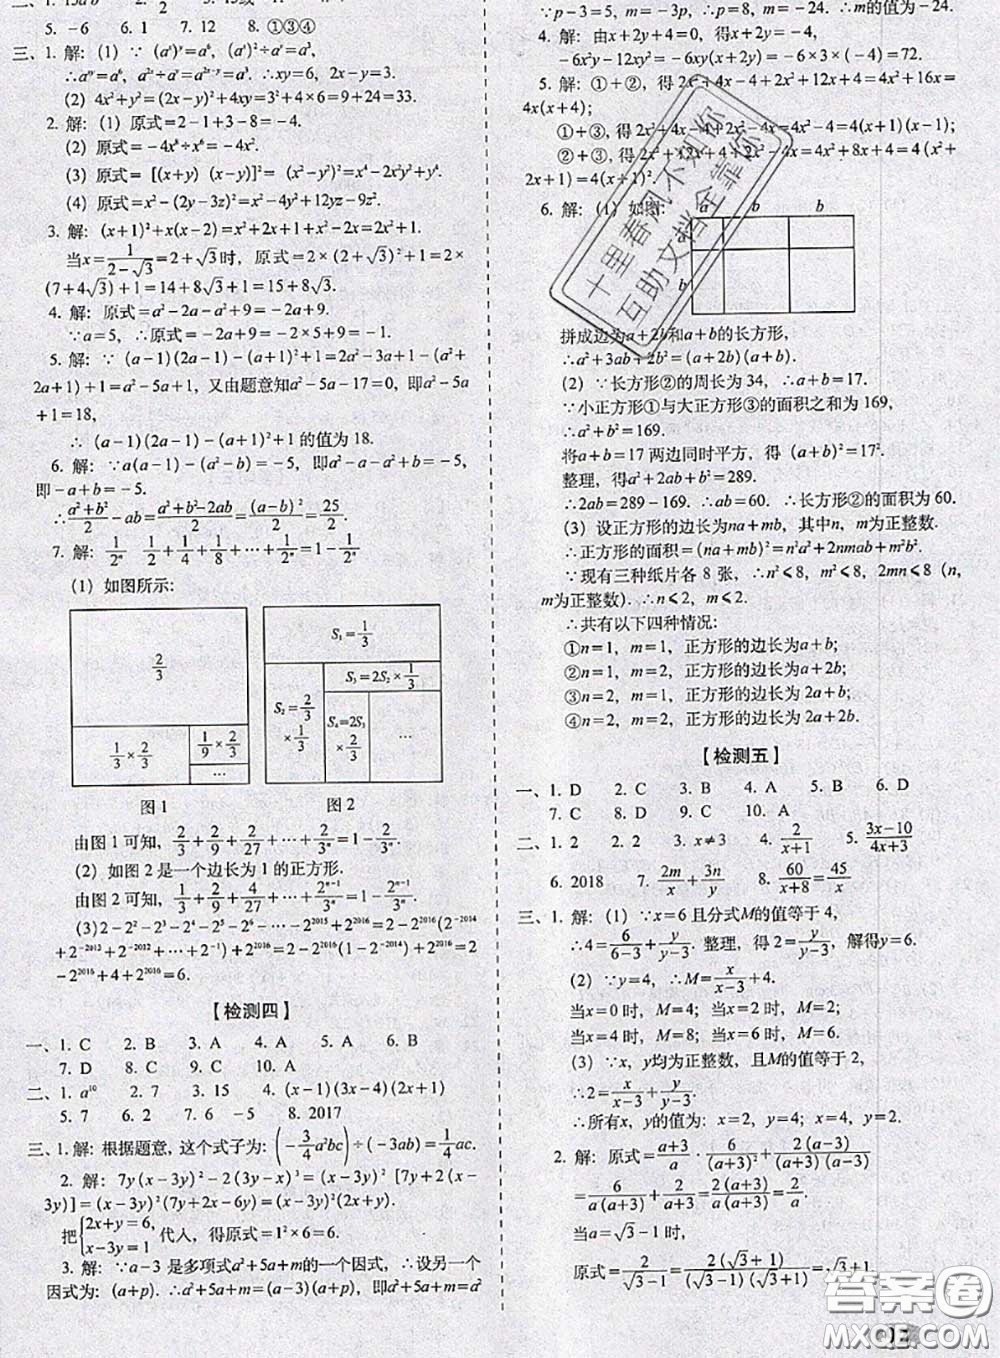 5. －6　6. 1　7. 12　8. ①③④
三、1. 解：(1) ∵ (aˣ)ʸ=a⁶，(aˣ)²÷aʸ=a³，
∴aˣʸ=a⁶，a²ˣ÷aʸ=a²ˣ⁻ʸ=a³. ∴xy=6，2x－y=3.
(2) 4x²+y²=(2x－y)²+4xy=3²+4×6=9+24=33.
2. 解：(1) 原式=2－1+3－8=－4.
(2) 原式=－4x⁸÷x⁶=－4x².
(3) 原式= [(x+y) (x－y)]²= (x²－y²)²=x⁴－2x²y²+y⁴.
(4) 原式=x²－(2y－3z)²=x²－4y²+12yz－9z².
3. 解：(x+1)²+x(x－2)=x²+2x+1+x²－2x=2x²+1.
当x=1/(2－√3)=2+√3时，原式=2(2+√3)²+1=2×
(7+4√3)+1=14+8√3+1=15+8√3.
4. 解：原式=a²－2a－a²+9=－2a+9.
∵a=5，∴原式=－2a+9=－2×5+9=－1.
5. 解：∵(a－1)(2a－1)－(a+1)²+1=2a²－3a+1－(a²+
2a+1)+1=a²－5a+1，又由题意知a²－5a－17=0，即a²－5a
+1=18，
∴ (a－1)(2a－1)－(a+1)²+1 的值为 18.
6. 解：∵a(a－1)－(a²－b)=－5，即a²－a－a²+b=－5，
即－a+b=－5.
∴(a²+b²)/2－ab=(a²+b²－2ab)/2=(a－b)²/2=25/2.
7. 解：1/2ⁿ　1/2+1/4+1/8+…+1/2ⁿ=1－1/2ⁿ
(1) 如图所示：
2/3
1/3×2/3
1/9×2/3
…
图 1
S₁=1/3
S₃=2S₂×1/3
S₂=2/3×1/3
S₄=2S₃×1/3
…
图 2
由图 1 可知，2/3+2/9+2/27+…+2/3ⁿ=1－2/3ⁿ.
(2) 如图 2 是一个边长为 1 的正方形.
由图 2 可知，1/3+2/9+4/27+…+2ⁿ⁻¹/3ⁿ=1－2ⁿ/3ⁿ.
【检测四】
一、1. C　2. B　3. A　4. A　5. A　6. B
7. D　8. C　9. C　10. D
二、1. a¹⁰　2. 7　3. 15　4. (x－1)(3x－4)(2x+1)
5. 7　6. 2　7. 6　－5　8. 2017
三、1. 解：根据题意，这个式子为：(－3/4a²bc)÷(－3ab)=1/4ac.
2. 解：7y(x－3y)²－2(3y－x)³=(x－3y)² [7y+2(x－
3y)]=(x－3y)²(7y+2x－6y)=(x－3y)²(2x+y).
把{2x+y=6，x－3y=1 代入，得原式=1²×6=6.
3. 解：∵a－3 是多项式a²+5a+m的一个因式，∴设另一个
因式为：(a+p). ∴a²+5a+m=(a－3)(a+p)，即a²+5a+m=a²
∵p－3=5，m=－3p，∴p=8，m=－24. ∴m的值为－24.
4. 解：由x+2y+4=0，得x+2y=－4，
－6x²y－12xy²=－6xy(x+2y)=－6×3×(－4)=72.
5. 解：①+②，得 2x²+4x－4+2x²+12x+4=4x²+16x=
4x(x+4)；
①+③，得 2x²+4x－4+2x²－4x=4x²－4=4(x+1)(x－1)；
②+③，得 2x²+12x+4+2x²－4x=4x²+8x+4=4(x²+
2x+1)=4(x+1)².
6. 解：(1) 如图：
a　b　b
a
b
拼成边为a+2b和a+b的长方形，
∴a²+3ab+2b²=(a+2b)(a+b).
(2) ∵长方形②的周长为 34，∴a+b=17.
∵小正方形①与大正方形③的面积之和为 169，
∴a²+b²=169.
将a+b=17 两边同时平方，得 (a+b)²=17²，
整理，得a²+2ab+b²=289，
∴2ab=289－169. ∴ab=60. ∴长方形②的面积为 60.
(3) 设正方形的边长为na+mb，其中n，m为正整数.
∴正方形的面积=(na+mb)²=n²a²+2nmab+m²b².
∵现有三种纸片各 8 张，∴n²≤8，m²≤8，2mn≤8 (n，
m为正整数). ∴n≤2，m≤2.
∴共有以下四种情况：
①n=1，m=1，正方形的边长为a+b；
②n=1，m=2，正方形的边长为a+2b；
③n=2，m=1，正方形的边长为2a+b；
④n=2，m=2，正方形的边长为2a+2b.
【检测五】
一、1. D　2. C　3. B　4. A　5. B　6. D
7. C　8. D　9. C　10. A
二、1. 2　2. 2　3. x≠3　4. 2/(x+1)　5. (3x－10)/(4x+3)
6. 2018　7. 2m/x+3n/y　8. 60/(x+8)=45/x
三、1. 解：(1) ∵x=6 且分式M的值等于 4，
∴4=6/(6－3)+y/(y－3). 整理，得 2=y/(y－3)，解得y=6.
(2) ∵y=4，∴M=x/(x－3)+4.
当x=0 时，M=4；当x=1 时，M=2；
当x=4 时，M=8；当x=5 时，M=6.
(3) ∵x，y均为正整数，且M的值等于 2，
∴2=x/(x－3)+y/(y－3).
∴所有x，y的值为：x=2，y=4；x=4，y=2.
2. 解：原式=(a+3)/a·6/(a+3)²+2(a－3)/((a+3)(a－3))
=6/(a(a+3))+2/(a+3)=2(a+3)/(a(a+3))=2/a.
当a=√3－1 时，
原式=2/(√3－1)=2(√3+1)/((√3－1)(√3+1))=√3+1.
十里春风不如你
互助文档全靠你
答案圈
MXQE.COM